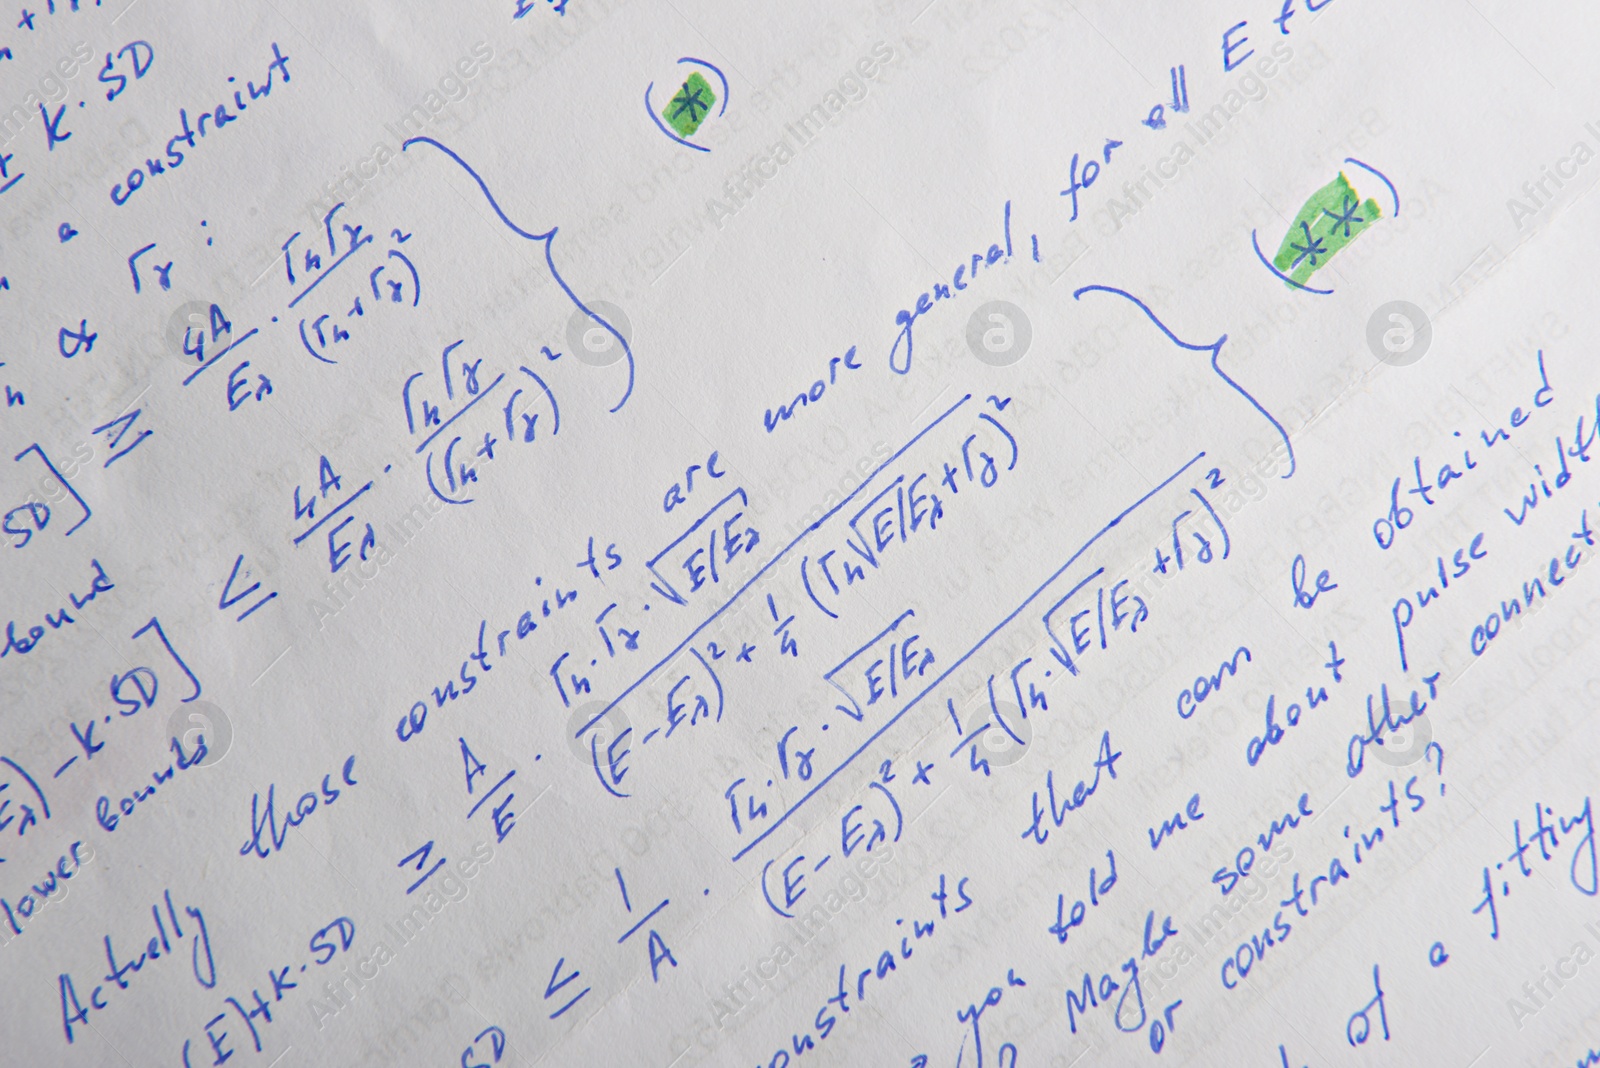 K·SD
a constraint
& Γγ :
SD] ≥ 4A/Eλ · ΓnΓγ/(Γn+Γγ)²
(*)
bound
−k·SD] ≤ 4A/Eλ · ΓnΓγ/(Γn+Γγ)²
lower bounds
Actually those constraints are more general, for all E
(E)+k·SD ≥ A/E · Γn·Γγ·√(E/Eλ) / ((E−Eλ)² + 1/4 (Γn√(E/Eλ)+Γγ)²)
(**)
SD ≤ 1/A · Γn·Γγ·√(E/Eλ) / ((E−Eλ)² + 1/4 (Γn·√(E/Eλ)+Γγ)²)
constraints that can be obtained
you told me about pulse width
? Maybe some other connect
or constraints?
of a fitting